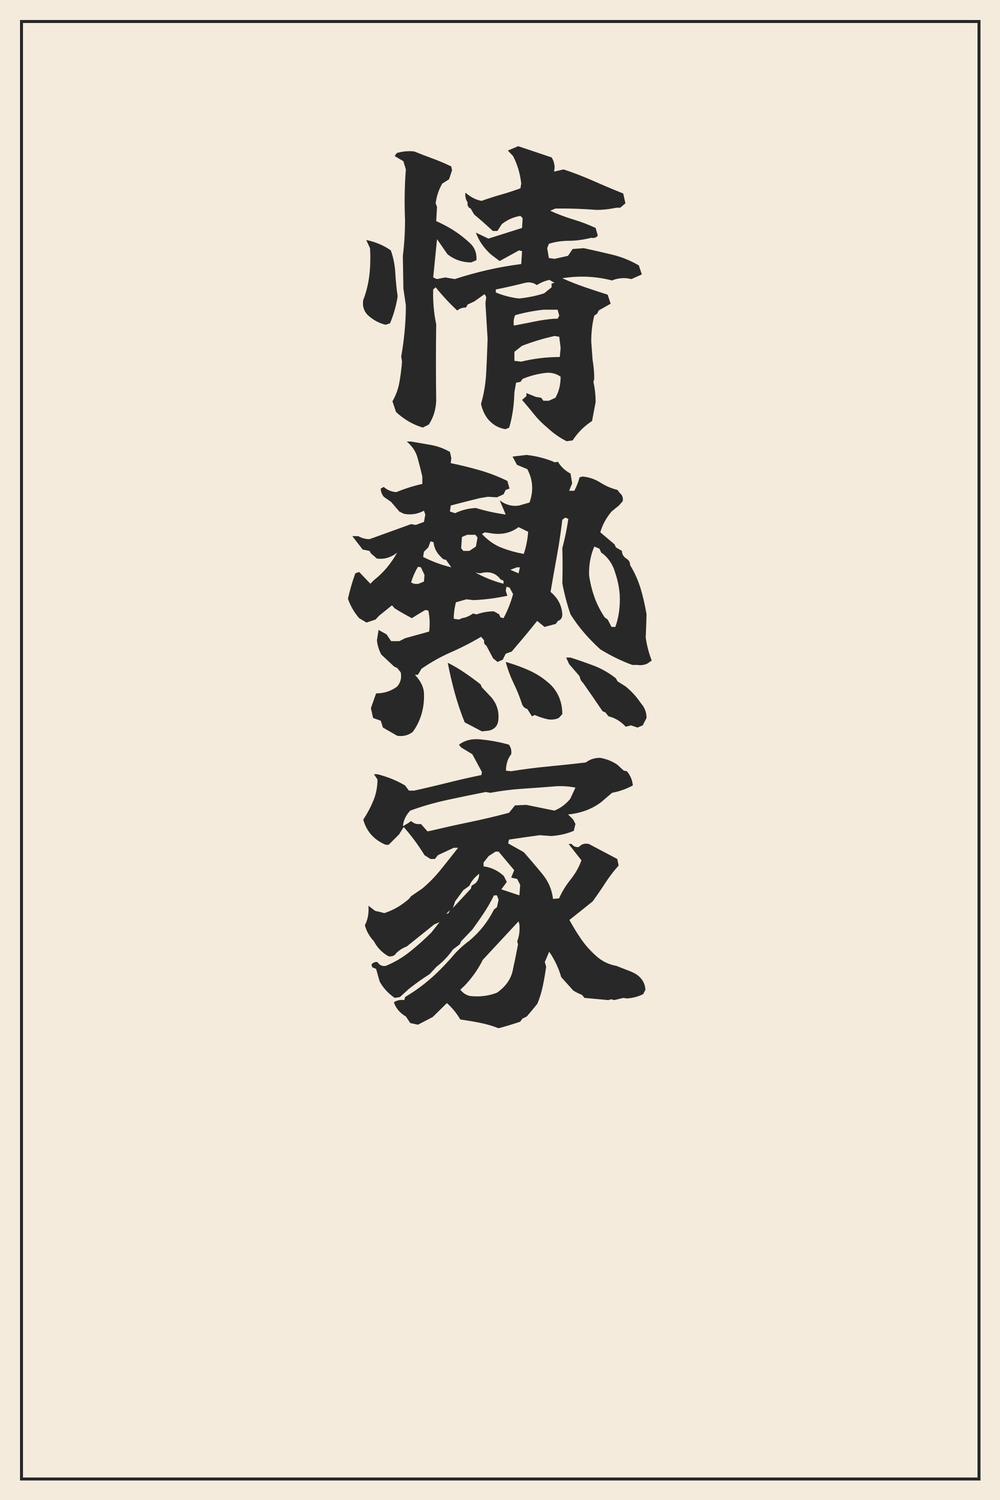 情熱家